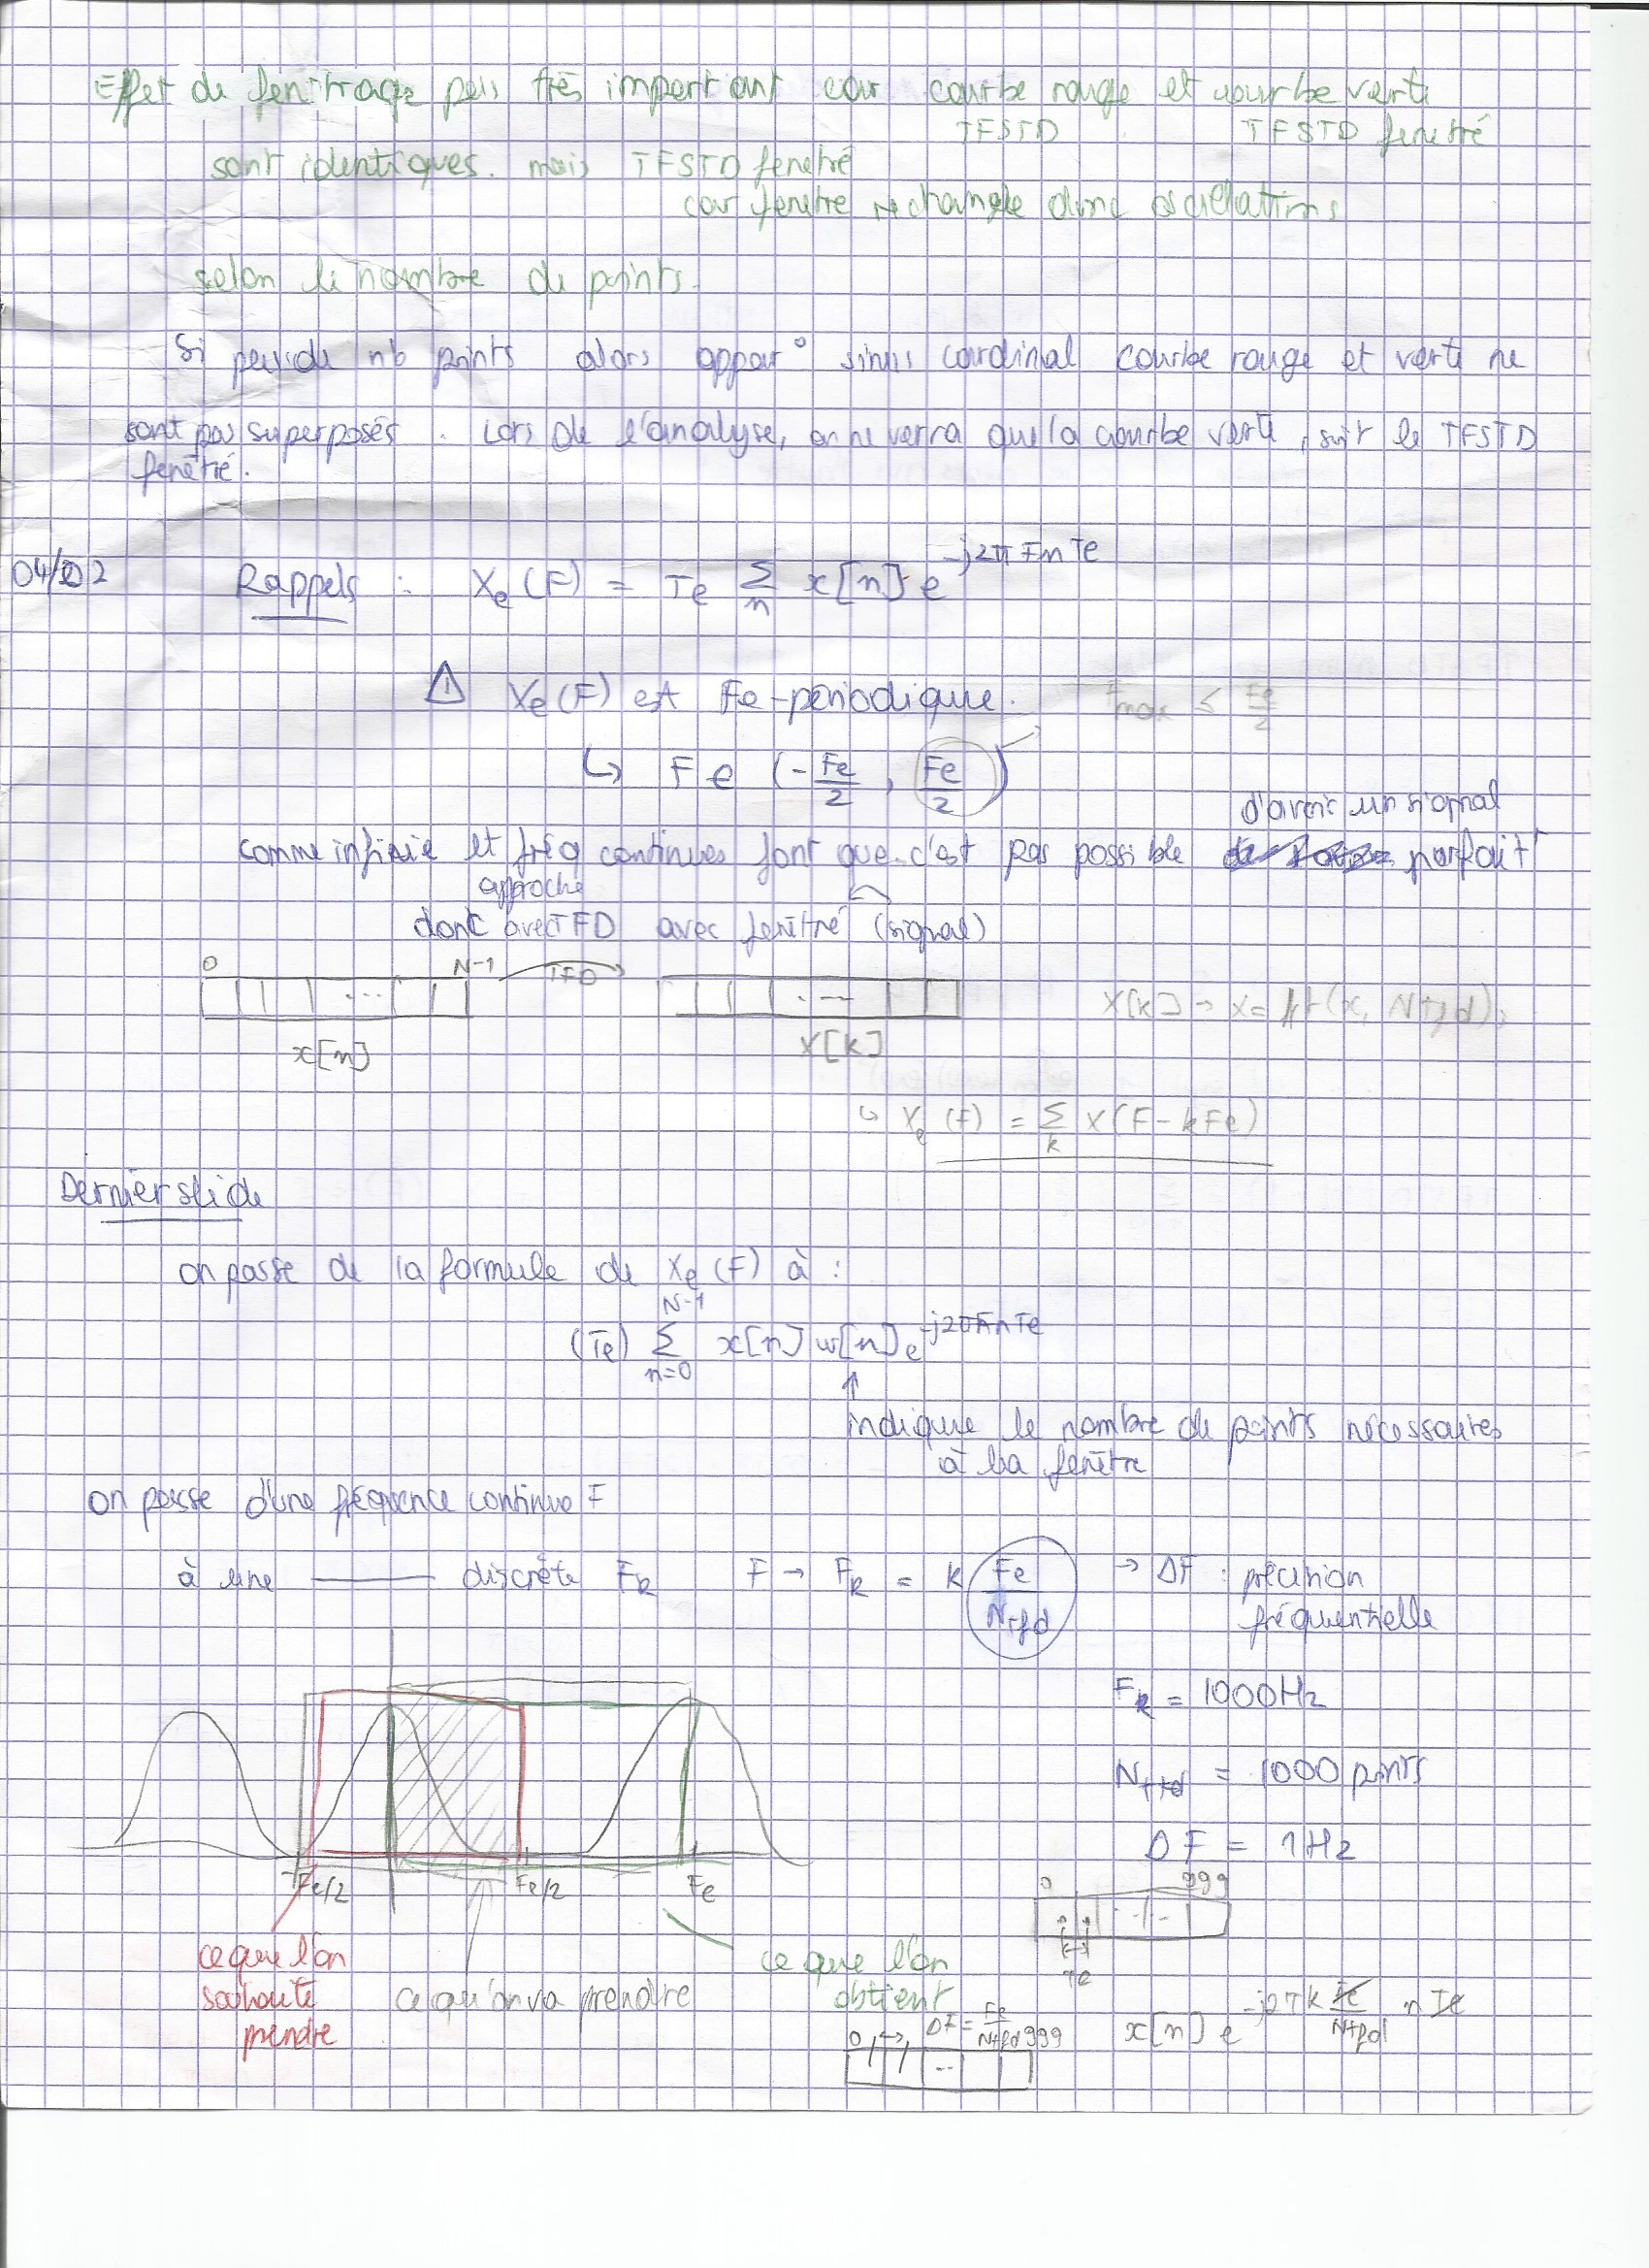 Effet de fenêtrage pas très important car courbe rouge et courbe verte
TFSTD TFSTD fenêtré
sont identiques. mais TFSTD fenetré
car fenetre rectangle donc oscillations
selon le nombre de points.
Si peu de nb points alors appar° sinus cardinal courbe rouge et verte ne
sont pas superposés. Lors de l'analyse, on ne verra que la courbe verte, soit le TFSTD
fenêtré.
04/02 Rappels : Xe(F) = Te Σn x[n] e^-j2πFnTe
⚠ Xe(F) est Fe-périodique. Fmax ≤ Fe/2
↳ F ∈ (-Fe/2, Fe/2)
d'avoir un signal
comme infinie et fréq continues font que c'est pas possible parfait
approche
donc avec TFD avec fenêtré (signal)
0 N-1 TFD
x[n] X[k] X[k] → X = fft(x, Ntfd);
↳ Xe(F) = Σk X(F-kFe)
Dernier slide
on passe de la formule de Xe(F) à :
(Te) Σ n=0 N-1 x[n] w[n] e^-j2πFnTe
↑
indique le nombre de points nécessaires
à la fenêtre
on passe d'une fréquence continue F
à une ——— discrète Fk F → Fk = k Fe/Ntfd → ΔF : précision
fréquentielle
Fe = 1000Hz
Ntfd = 1000 points
ΔF = 1Hz
-Fe/2 Fe/2 Fe
0 999
Te
ce que l'on
souhaite
prendre
ce qu'on va prendre
ce que l'on
obtient
0 ΔF = Fe/Ntfd 999
x[n] e^-j2πk Fe/Ntfd nTe